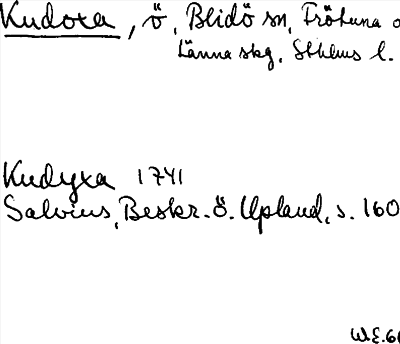 Kudoxa, ö, Blidö sn, Frötuna o
Länna skg, Sthlms l.
Kudyxa 1741
Salvius, Beskr. ö. Upland, s. 160
W.E. 60